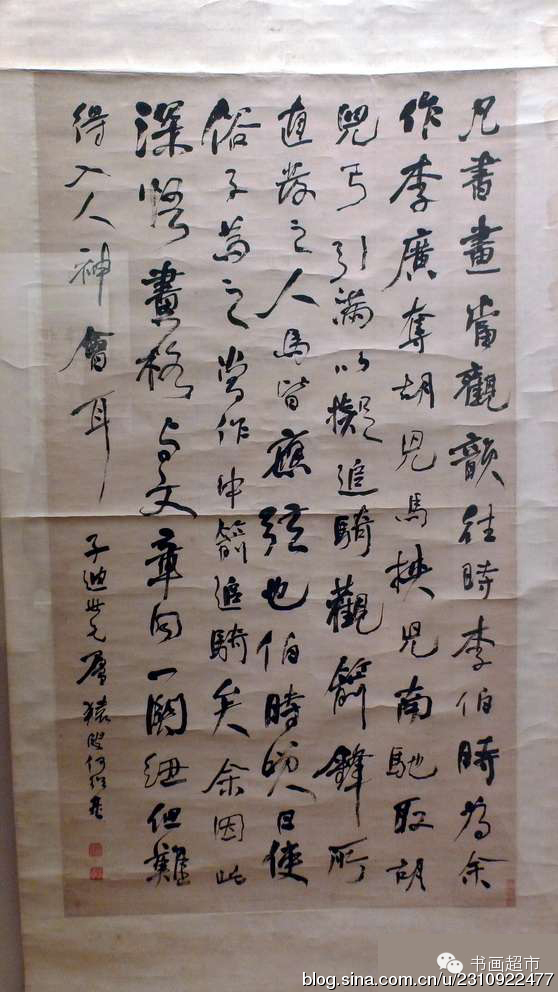 凡書畫當觀韻往時李伯時为余
作李廣奪胡兒馬挾兒南馳取胡
兒弓引滿以擬追騎觀箭鋒所
直發之人馬皆應弦也伯時笑曰使
俗子為之當作中箭追騎矣余因此
深悟畫格与文章同一關紐但難
得入人神會耳
子迪世兄屬 猿叟何紹基
书画超市
blog.sina.com.cn/u/2310922477